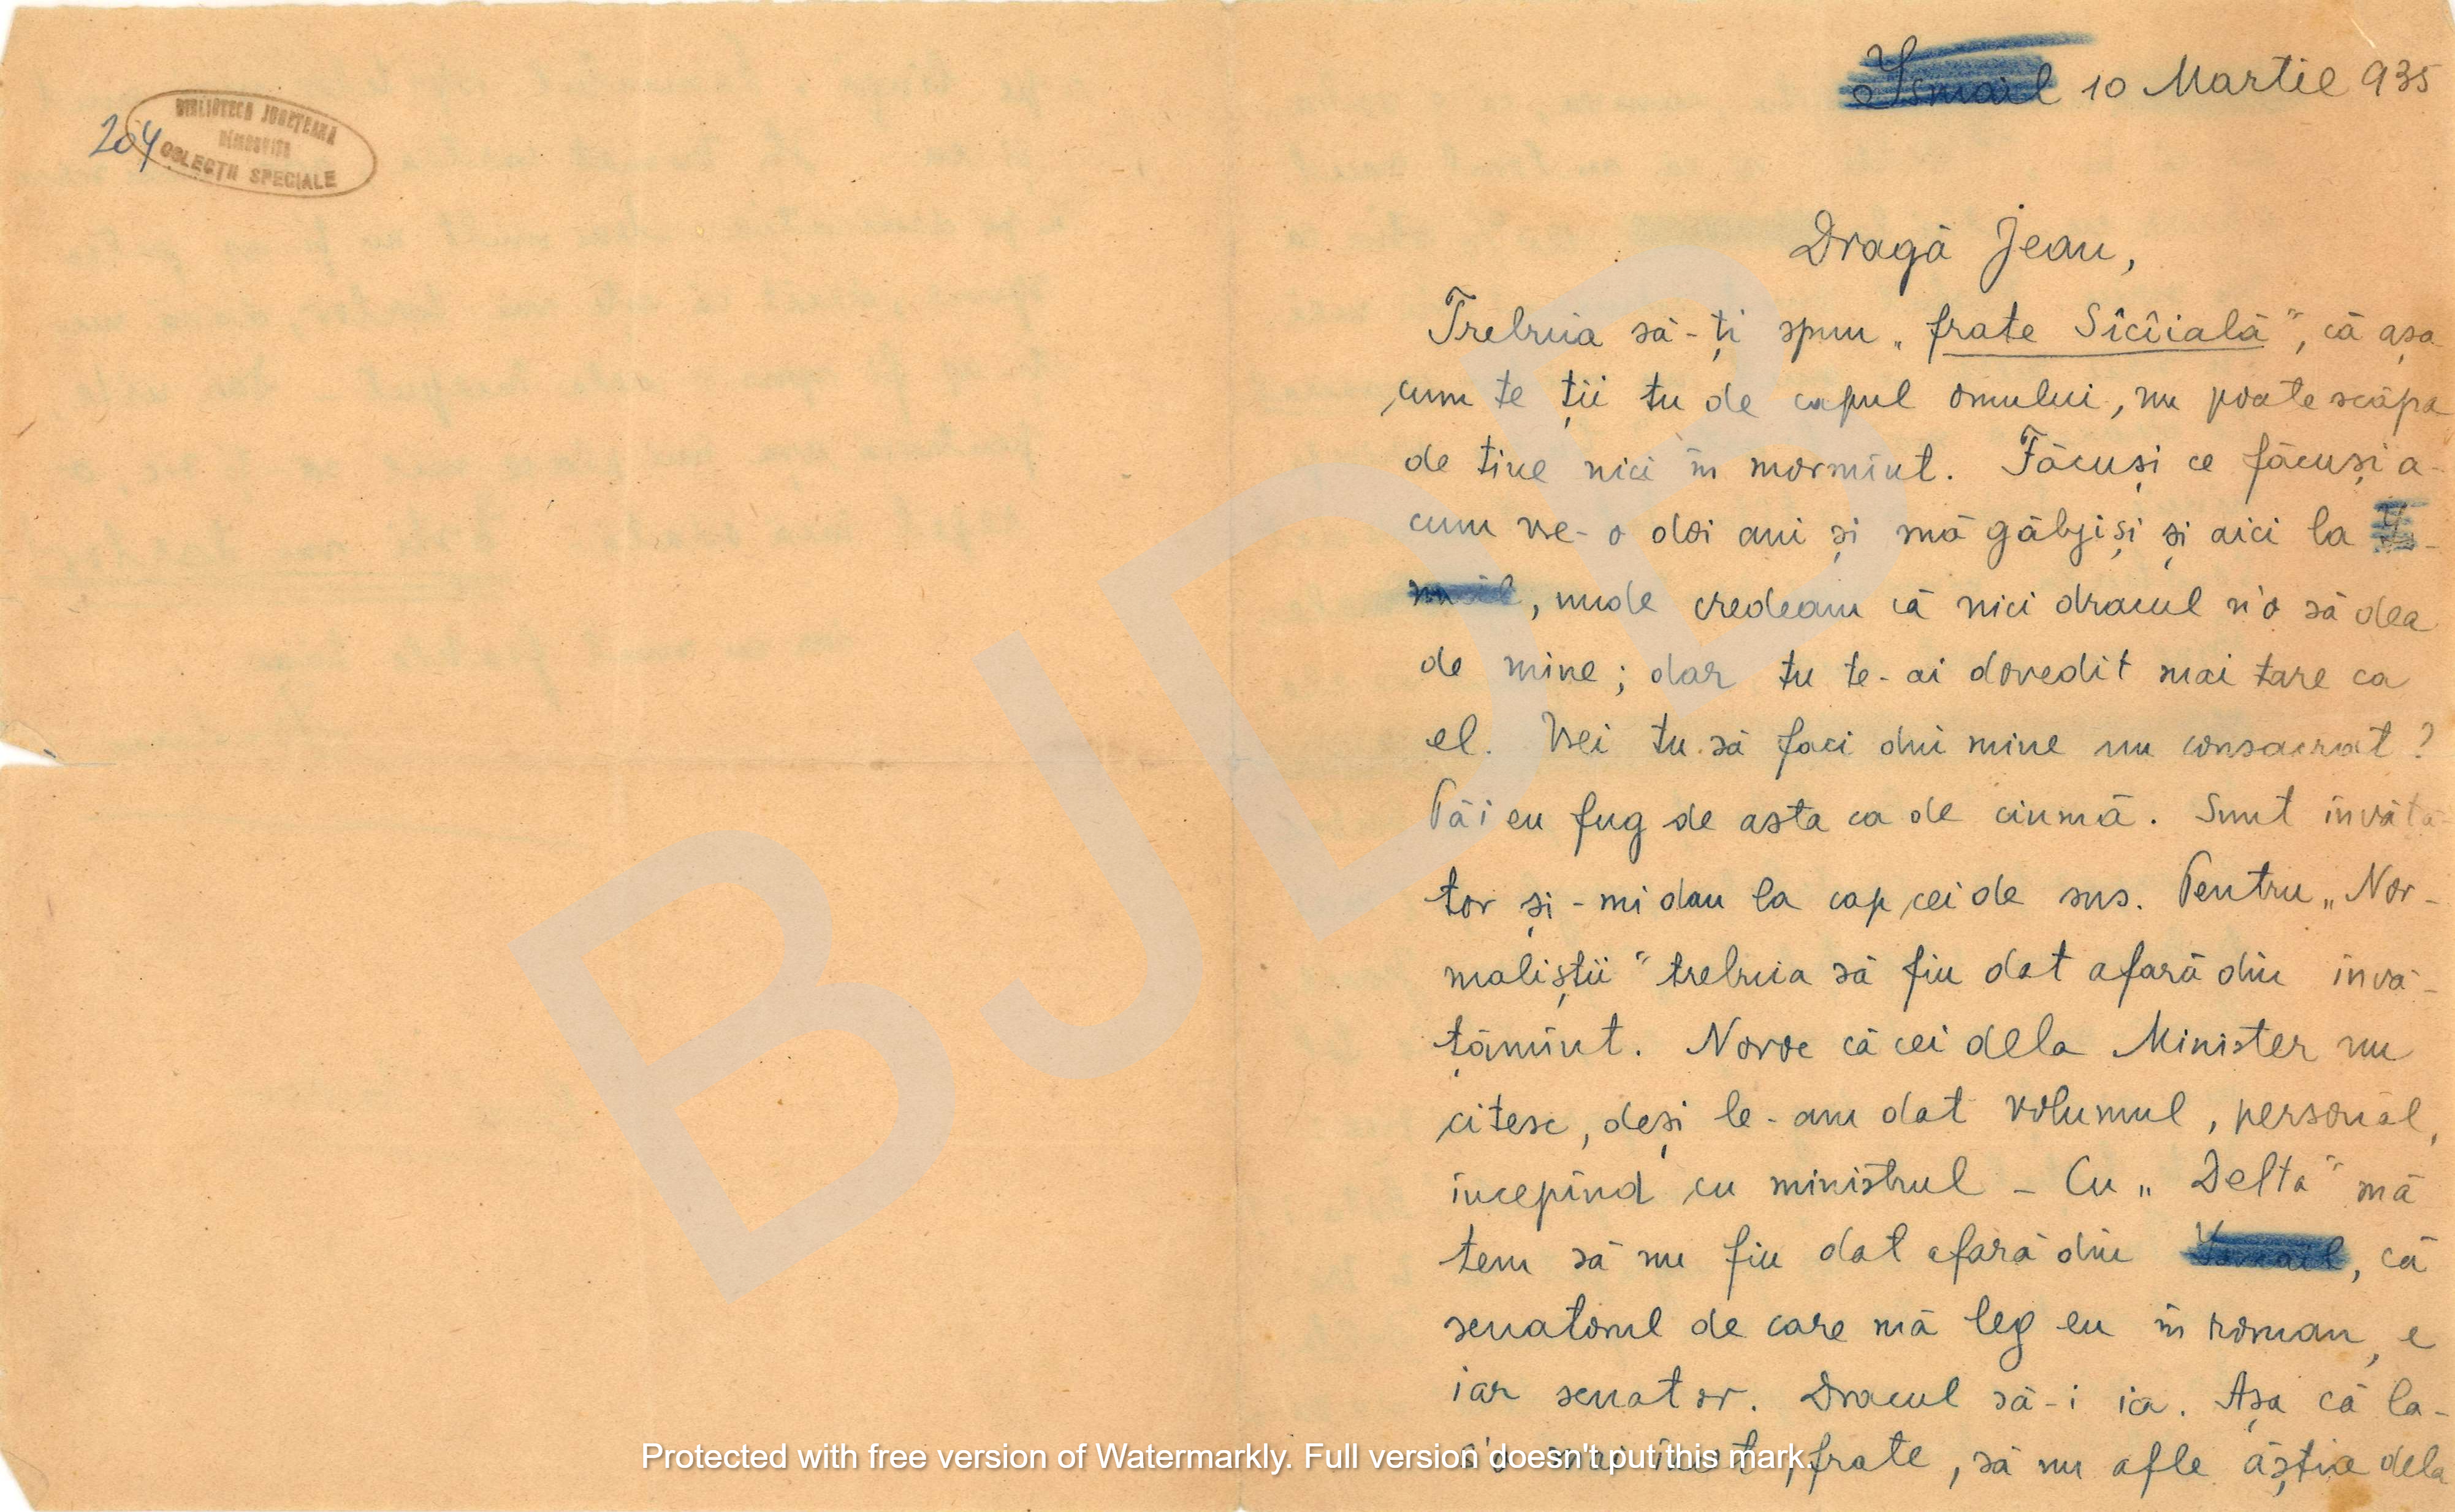 204
BIBLIOTECA JUDEȚEANĂ
DÎMBOVIȚA
COLECȚII SPECIALE
Ismail 10 Martie 935
Dragă Jean,
Trebuia să-ți spun „frate Sîcîială", că așa
cum te ții tu de capul omului, nu poate scăpa
de tine nici în mormînt. Făcuși ce făcuși a-
cum vre-o doi ani și mă găbjiși și aici la Is-
mail, unde credeam că nici dracul n'o să dea
de mine; dar tu te-ai dovedit mai tare ca
el. Vrei tu să faci din mine un consacrat?
Păi eu fug de asta ca de ciumă. Sunt învăță-
tor și-mi dau la cap cei de sus. Pentru „Nor-
maliștii" trebuia să fiu dat afară din învă-
țămînt. Noroc că cei dela Minister nu
citesc, deși le-am dat volumul, personal,
începînd cu ministrul – Cu „Delta" mă
tem să nu fiu dat afară din Ismail, că
senatorul de care mă leg eu în roman, e
iar senator. Dracul să-i ia. Așa că la-
frate, să nu afle ăștia dela
BJD
Protected with free version of Watermarkly. Full version doesn't put this mark.